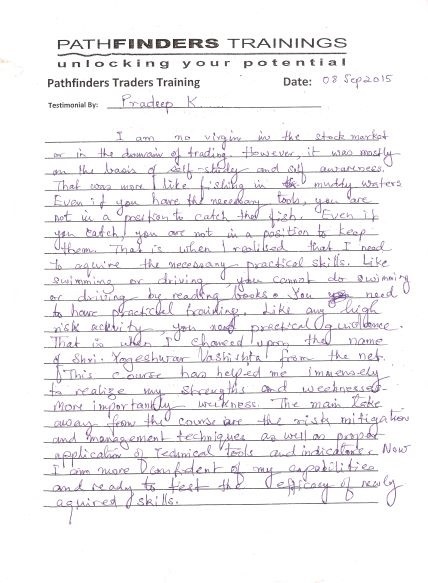 PATHFINDERS TRAININGS
unlocking your potential
Pathfinders Traders Training Date: 08 Sep 2015
Testimonial By: Pradeep K
I am no virgin in the stock market
or in the domain of trading. However, it was mostly
on the basis of self-study and self awareness.
That was more like fishing in muddy waters
Even if you have the necessary tools, you are
not in a position to catch the fish. Even if
you catch, you are not in a position to keep
them. That is when I realised that I need
to aquire the necessary practical skills. Like
swimming or driving, you cannot do swimming
or driving by reading books. You need
to have practical training. Like any high
risk activity, you need practical guidance.
That is when I chanced upon the name
of Shri. Yogeshwar Vashishta from the net.
This course has helped me immensely
to realize my strengths and weeknesses
more importantly weekness. The main take
away from the course are the risks mitigation
and management techniques as well as proper
application of Technical tools and indications. Now
I am more confident of my capabilities
and ready to test the efficacy of newly
aquired skills.